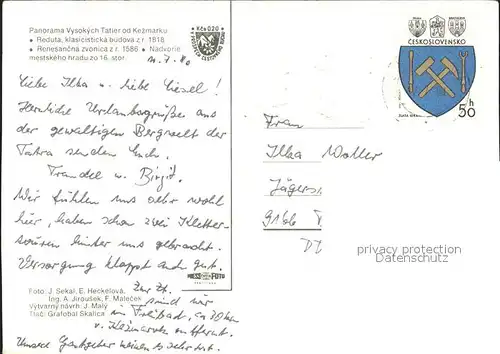 Panorama Vysokých Tatier od Kežmarku
• Reduta, klasicistická budova z r. 1818
• Renesančná zvonica z r. 1586 • Nádvorie
mestského hradu zo 16. stor.
Kčs 0,20
Liebe Ilka u. liebe Liesel!
Herzliche Urlaubsgrüße aus
der gewaltigen Bergwelt der
Tatra senden Euch
Traudel u. Birgit.
Wir fühlen uns sehr wohl
hier, haben schon zwei Kletter-
touren hinter uns gebracht.
Versorgung klappt auch gut.
Zur Zt.
sind wir
im Freibad, ca 30 km
v. Kežmarok entfernt.
Unsere Gastgeber
Foto: J. Sekal, E. Heckelová,
Ing. A. Jiroušek, F. Maleček
Výtvarný návrh: J. Malý
Tlač: Grafobal Skalica
PRESSFOTO
ČESKOSLOVENSKO
50 h
Frau
Ilka
Jägers
9166
DD
privacy protection
oldthing.de